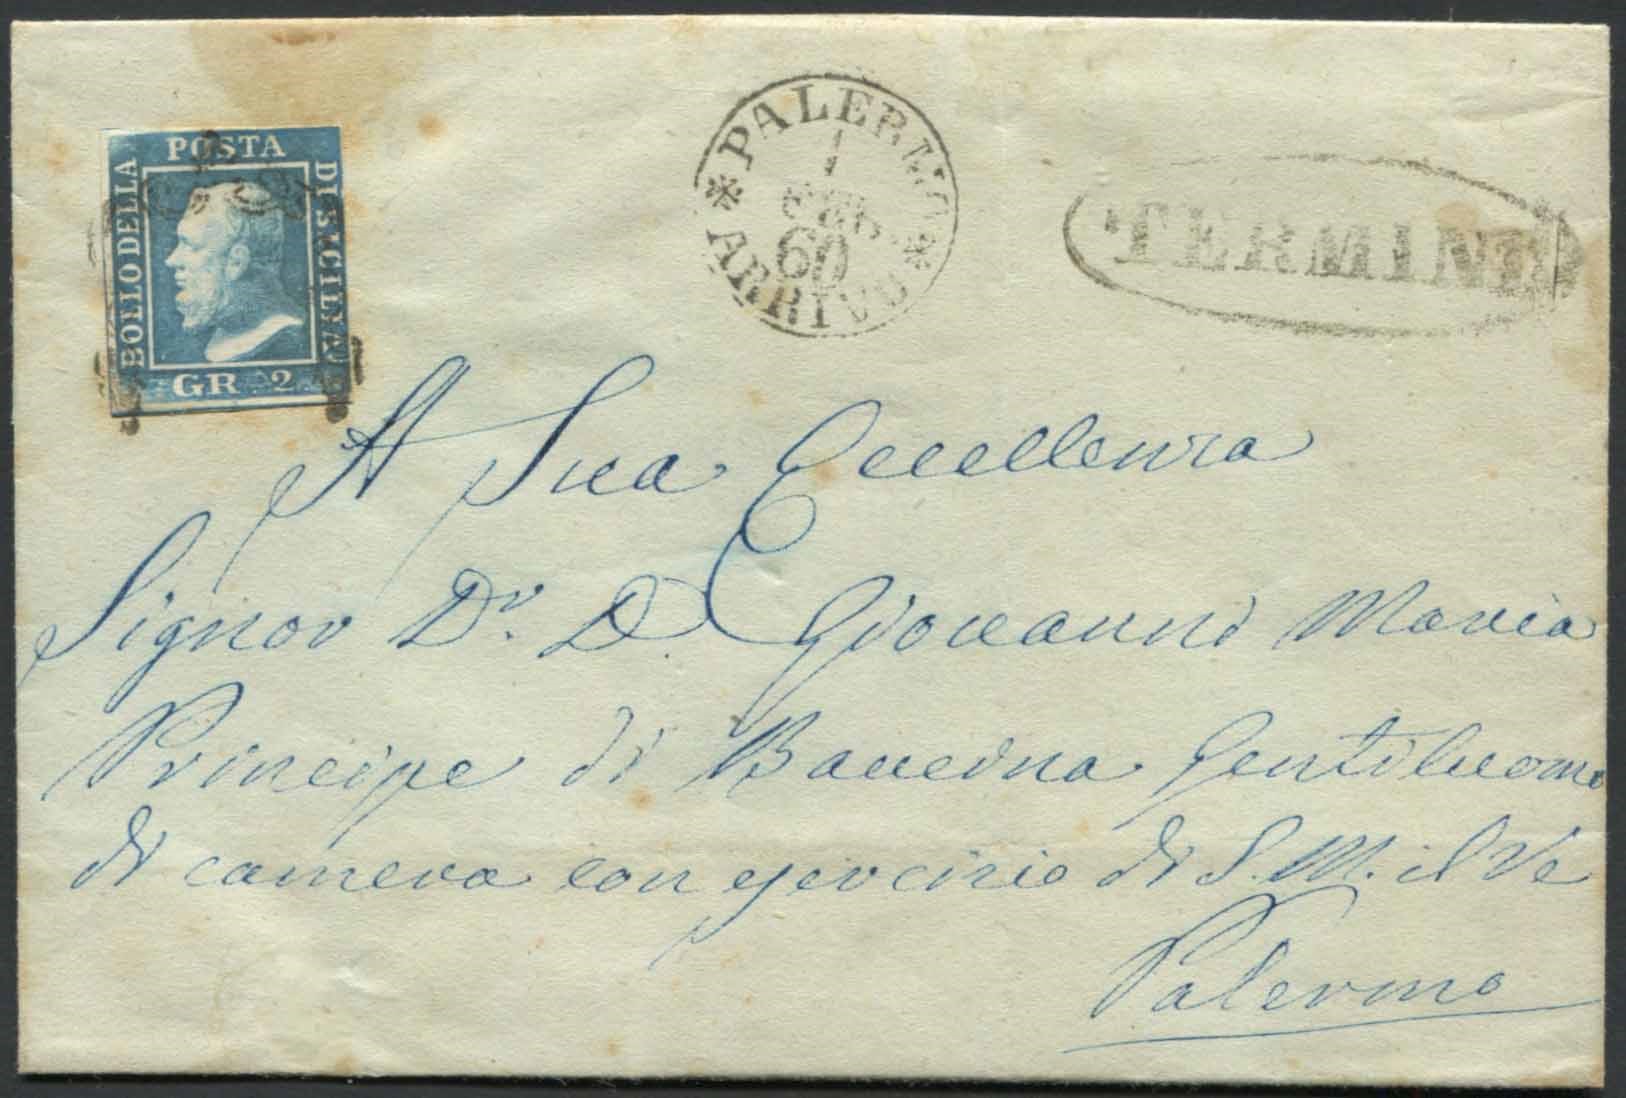 POSTA
BOLLO DELLA
DI SICILIA
GR 2
* PALERMO *
1
60
ARRIVO
TERMINI
A Sua Eccellenza
Signor Dr. D. Giovanni Maria
Principe di Baucina Gentiluomo
di camera con esercizio di S. M. il Re
Palermo